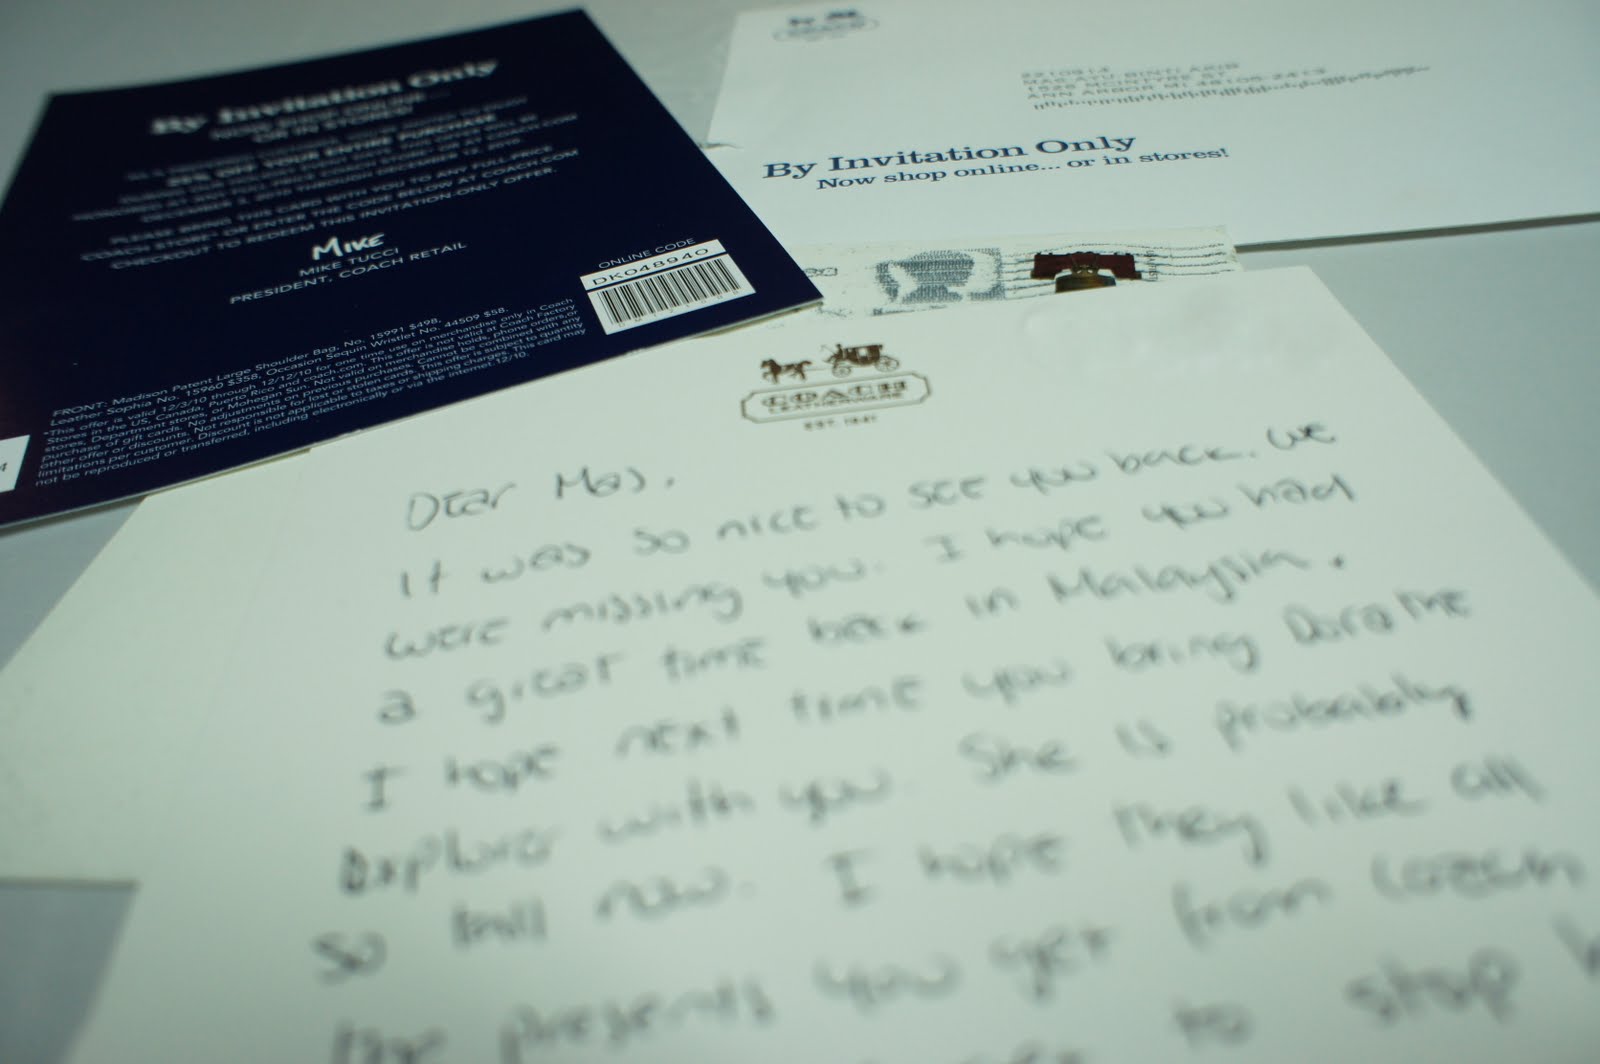 By Invitation Only
OR IN STORES!
25% OFF YOUR ENTIRE PURCHASE
PLEASE BRING THIS CARD WITH YOU TO ANY FULL-PRICE
COACH STORE* OR ENTER THE CODE BELOW AT COACH.COM
CHECKOUT TO REDEEM THIS INVITATION-ONLY OFFER.
MIKE
MIKE TUCCI
PRESIDENT, COACH RETAIL
ONLINE CODE
DK048940
FRONT: Madison Patent Large Shoulder Bag, No. 15991 $498,
Leather Sophia No. 15960 $358, Occasion Sequin Wristlet No. 44509 $58.
*This offer is valid 12/3/10 through 12/12/10 for one time use on merchandise only in Coach
Stores in the US, Canada, Puerto Rico and coach.com. This offer is not valid at Coach Factory
stores, Department stores, or Mohegan Sun. Not valid on merchandise holds, phone orders, or
purchase of gift cards. No adjustments on previous purchases. Cannot be combined with any
other offer or discounts. Not responsible for lost or stolen cards. This offer is subject to quantity
limitations per customer. Discount is not applicable to taxes or shipping charges. This card may
not be reproduced or transferred, including electronically or via the internet. 12/10.
4
2210914
MAS AYU BINTI AKIB
1526 MCINTYRE ST
ANN ARBOR MI 48105-2413
By Invitation Only
Now shop online... or in stores!
COACH
LEATHERWARE
EST. 1941
Dear Mas,
It was so nice to see you back. We
were missing you. I hope you had
a great time back in Malaysia.
I hope next time you bring Dora the
Explorer with you. She is probably
so tall now. I hope they like all
the presents you get from Coach
to stop